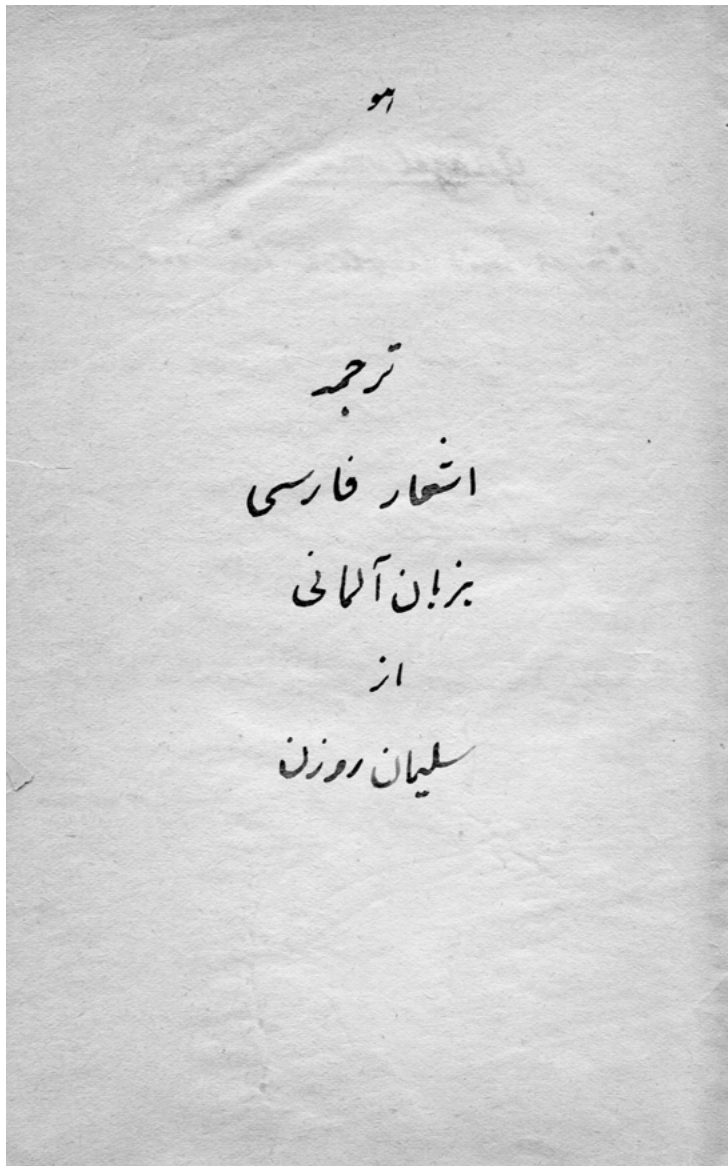 هو
ترجمه
اشعار فارسی
بزبان آلمانی
از
سلیمان روزن